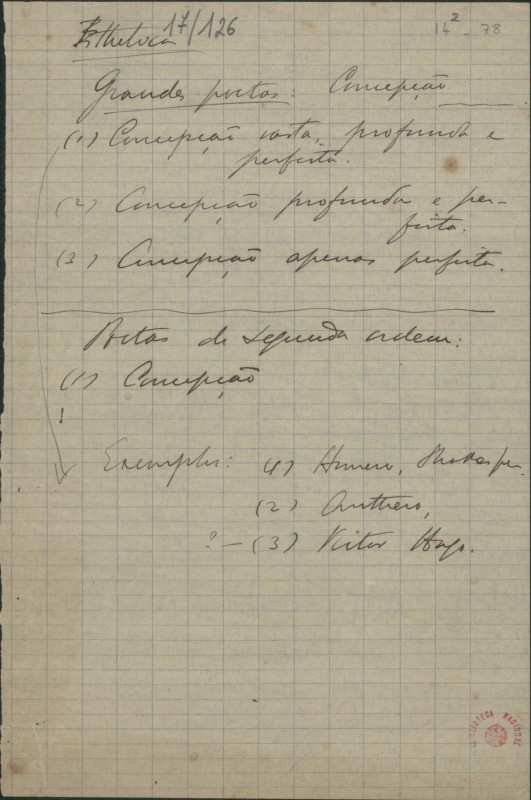 Esthetica 17/126 14² - 78
Grandes poetas: Concepção
(1) Concepção vasta, profunda e
perfeita.
(2) Concepção profunda e per-
feita.
(3) Concepção apenas perfeita.
Poetas de segunda ordem:
(1) Concepção
Exemplos: (1) Homero, Shakespeare
(2) Anthero,
? – (3) Victor Hugo.
BIBLIOTECA NACIONAL